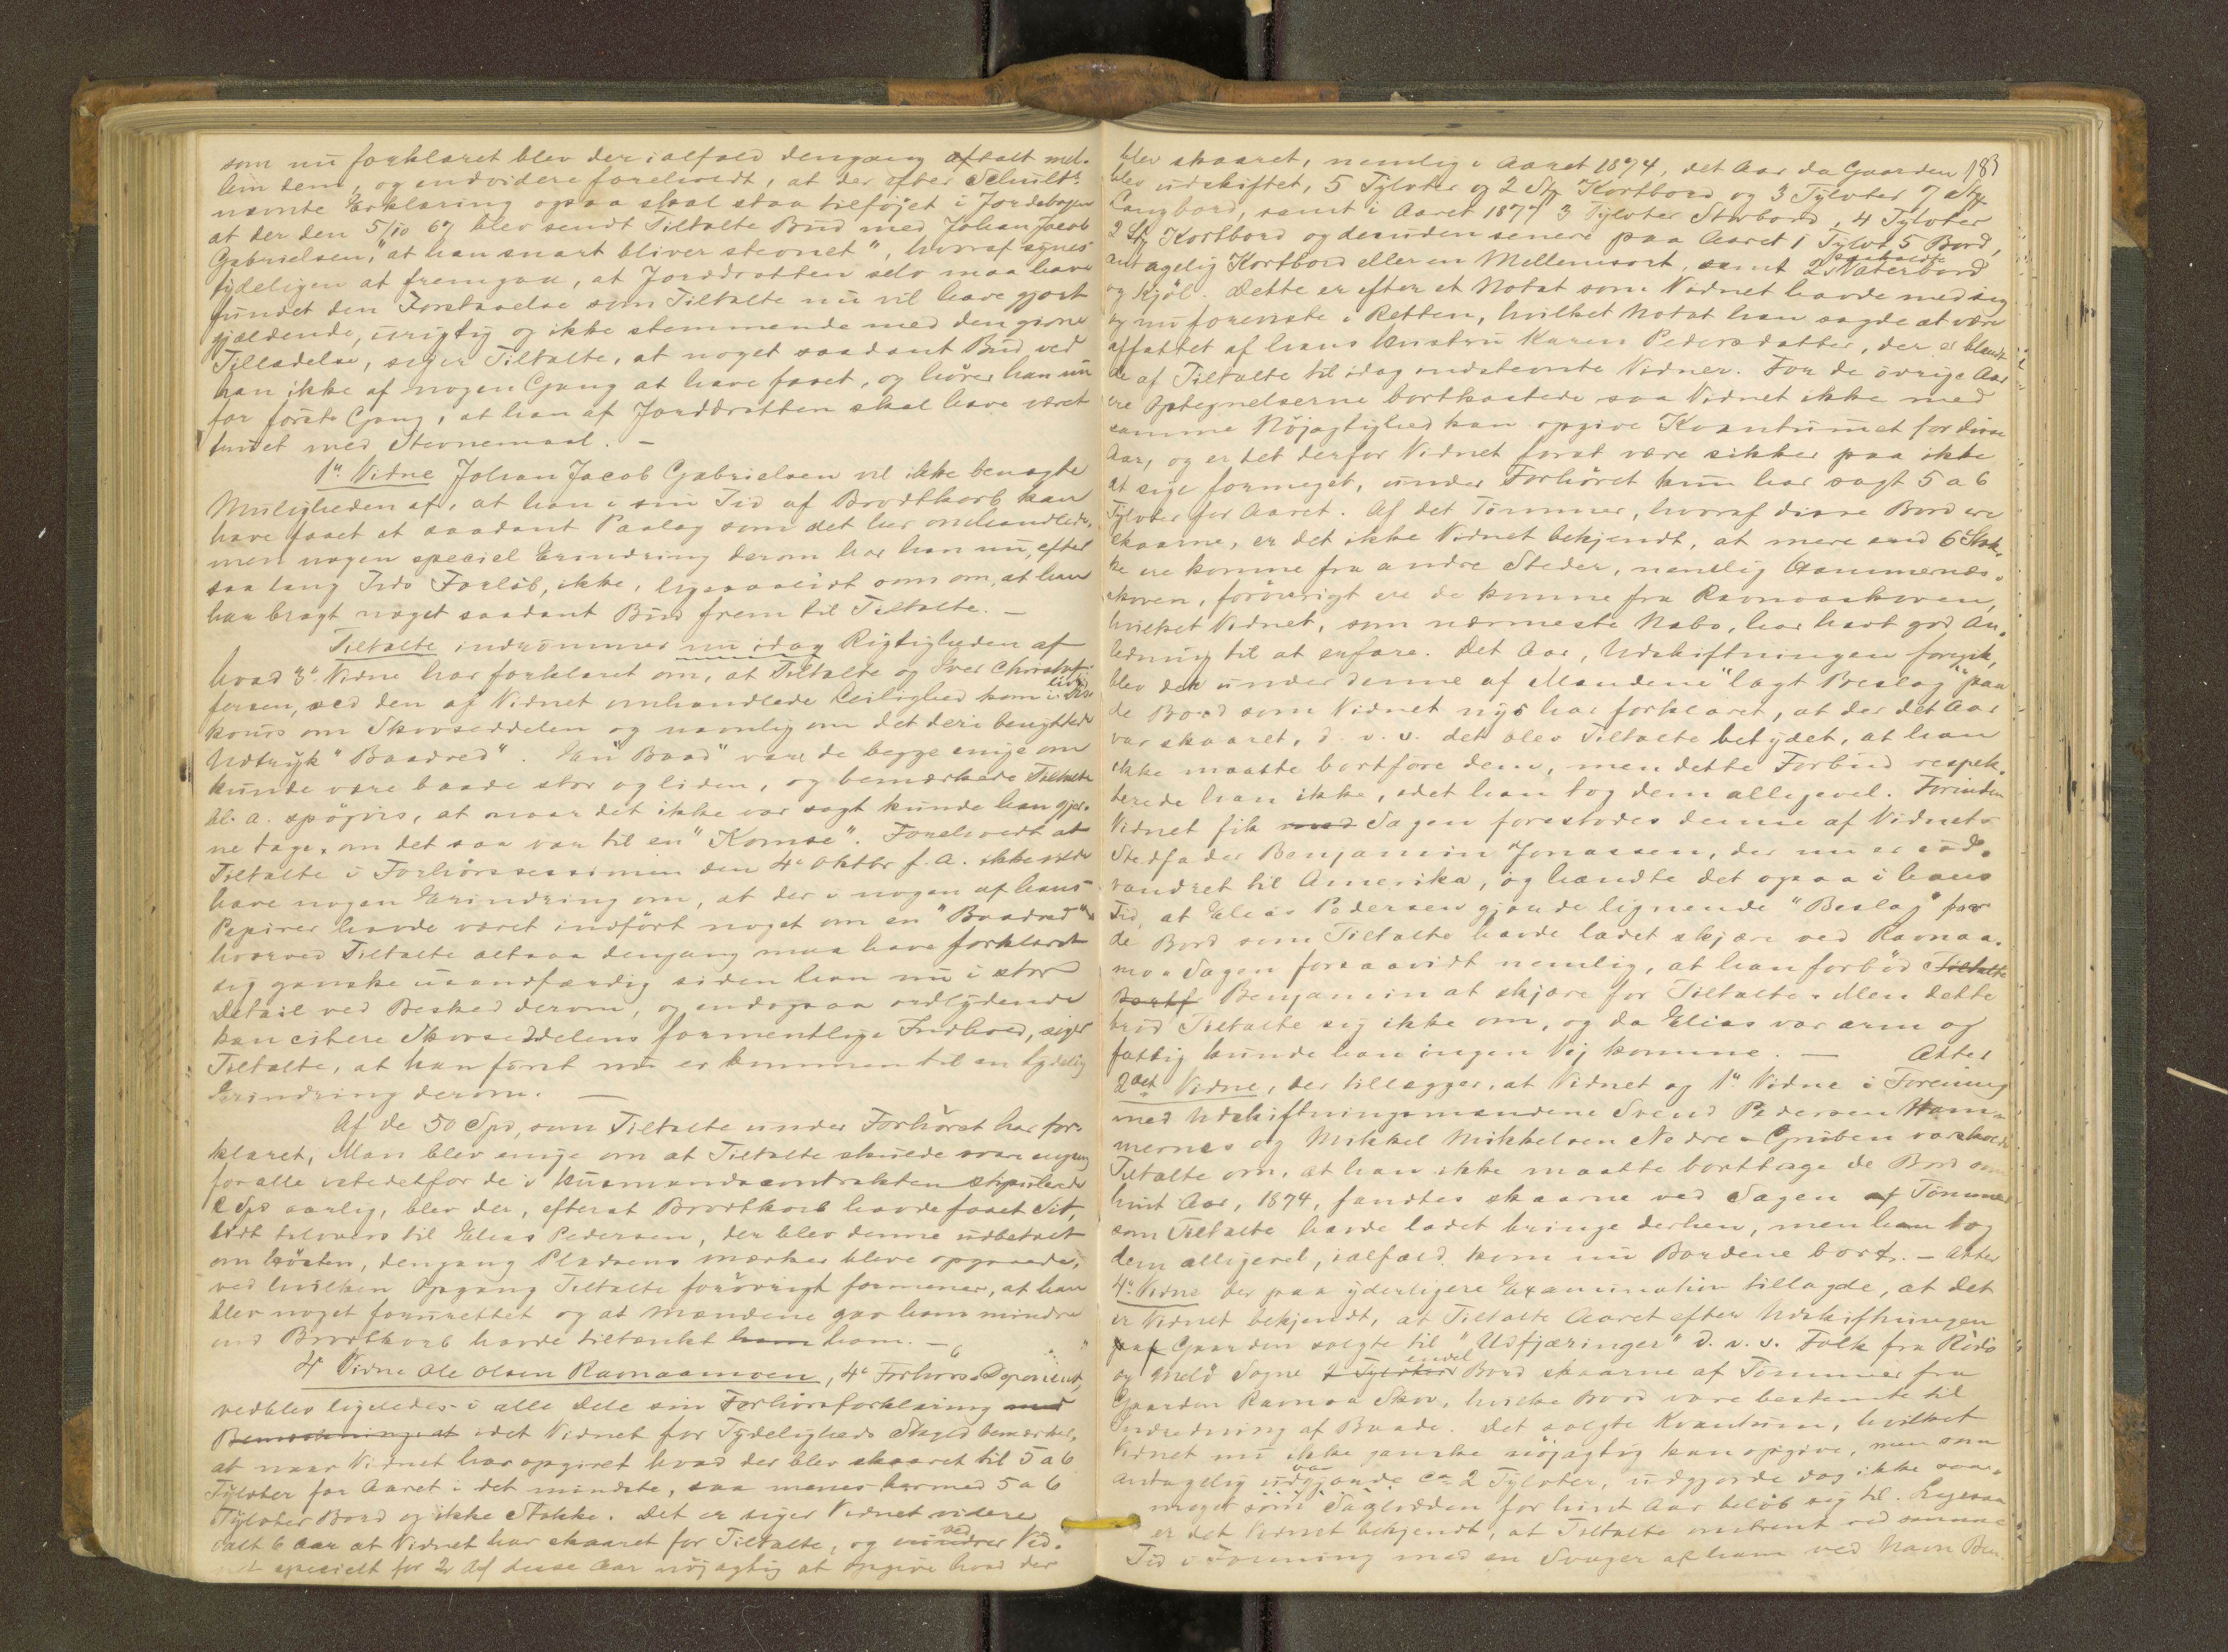 som nu forklaret blev der ialfald dengang aftalt mel-
lem dem, og endvidere foreholdt, at der efter Schults
nævnte Erklæring ogsaa skal staa tilføjet i Jordebogen
at der den 5/10 67 blev sendt Tiltalte Bud med Johan Jacob
Gabrielsen, "at han snart bliver stevnet", hvoraf synes
tydeligen at fremgaa, at Jorddrotten selv maa have
fundet den Forstaaelse som Tiltalte nu vil have gjort
gjældende, urigtig og ikke stemmende med den givne
Tilladelse, siger Tiltalte, at noget saadant Bud ved
han ikke af nogen Gang at have faaet, og hører han nu
for første Gang, at han af Jorddrotten skal have været
truet med Stevnemaal. —
1ste Vidne Johan Jacob Gabrielsen vil ikke benægte
Muligheden af, at han i sin Tid af Brodtkorb kan
have faaet et saadant Paalæg som det her omhandlede,
men nogen speciel Erindring derom har han nu, efter
saa lang Tids Forløb, ikke, ligesaalidt som om, at han
har bragt noget saadant Bud frem til Tiltalte. —
Tiltalte indrømmer nu idag Rigtigheden af
hvad 3die Vidne har forklaret om, at Tiltalte og Iver Christof-
fersen, ved den af Vidnet omhandlede Leilighed kom i Dis-
kours om Skovseddelen og navnlig om det deri benyttede
Udtryk "Baadved". En "Baad" vare de begge enige om
kunde være baade stor og liden, og bemærkede Tiltalte
bl. a. spøgvis, at naar det ikke var sagt kunde han gjer-
ne tage, om det saa var til en "Komse". Foreholdt at
Tiltalte i Forhørssessionen den 4de Oktbr f. A. ikke vilde
have nogen Erindring om, at der i nogen af hans
Papirer havde været indført noget om en "Baadved",
hvorved Tiltalte altsaa dengang maa have forklaret
sig ganske usandfærdig siden han nu i stor
Detail ved Besked derom, og endogsaa ordlydende
kan citere Skovseddelens formentlige Indhold, siger
Tiltalte, at han først nu er kommen til en tydelig
Erindring derom. —
Af de 50 Spd, som Tiltalte under Forhøret har for-
klaret, Man blev enige om at Tiltalte skulde svare engang
for alle istedetfor de i Husmandscontrakten stipulerede
2 Spd aarlig, blev der, efterat Brodtkorb havde faaet Sit,
lidt tilovers til Elias Pedersen, der blev denne udbetalt
om Høsten, dengang Pladsens mærker bleve opgaaede,
ved hvilken Opgang Tiltalte forøvrigt formener, at han
blev noget forurettet og at Mændene gav ham mindre
end Brodtkorb havde tiltænkt ham ham. —
4de Vidne Ole Olsen Ravnaamoen, 4de Forhørs Deponent,
vedblev ligeledes i alle Dele sin Forhørsforklaring med
Bemærkning at idet Vidnet for Tydeligheds Skyld bemærker,
at naar Vidnet har opgivet hvad der blev skaaret til 5 a 6
Tylvter for Aaret i det mindste, saa menes hermed 5 a 6
Tylvter Bord og ikke Stokke. Det er siger Vidnet videre
ialt 6 Aar at Vidnet har skaaret for Tiltalte, og ved Vid-
net specielt for 2 af disse Aar nøjagtig at opgive hvad der
183
blev skaaret, nemlig i Aaret 1874, det Aar da Gaarden
blev udskiftet, 5 Tylvter og 2 Stk Kortbord og 3 Tylvter 7 Stk
Langbord, samt i Aaret 1877 3 Tylvter Storbord, 4 Tylvter
2 Stk Kortbord og desuden senere paa Aaret 1 Tylvt 5 Bord,
antagelig Kortbord eller en Mellemsort, samt 2 Vaterbord
og Kjøl. Dette er efter et Notat som Vidnet havde med sig
og nu foreviste i Retten, hvilket Notat han sagde at være
affattet af hans Hustru Karen Pedersdatter, der er blandt
de af Tiltalte til idag indstevnte Vidner. For de øvrige Aar
ere Optegnelserne bortkastede saa Vidnet ikke med
samme Nøjagtighed kan opgive Kvantumet for disse
Aar, og er det derfor Vidnet forat være sikker paa ikke
at sige formeget, under Forhøret kun har sagt 5 a 6
Tylvter for Aaret. Af det Tømmer, hvoraf disse Bord ere
skaarne, er det ikke Vidnet bekjendt, at mere end 6 Stok-
ke ere komne fra andre Steder, nemlig Hammernes-
skoven, forøvrigt ere de komne fra Ravnaaskoven,
hvilket Vidnet, som nærmeste Nabo, har havt god An-
ledning til at erfare. Det Aar, Udskiftningen foregik,
blev der under denne af Mændene "lagt Beslag" paa
de Bord som Vidnet nys har forklaret, at der det Aar
var skaaret, d. v. s. det blev Tiltalte betydet, at han
ikke maatte bortføre dem, men dette Forbud respek-
terede han ikke, idet han tog dem alligevel. Forinden
Vidnet fik med Sagen forestodes denne af Vidnets
Stedfader Benjamin Jonassen, der nu er ud-
vandret til Amerika, og hændte det ogsaa i hans
Tid, at Elias Pedersen gjorde lignende "Beslag" for
de Bord som Tiltalte havde ladet skjære ved Ravnaa-
mo Sagen forsaavidt nemlig, at han forbød Tiltalte
Benjamin at skjære for Tiltalte. Men dette
brød Tiltalte sig ikke om, og da Elias var arm og
fattig kunde han ingen Vej komme. — Atter
2det Vidne, der tillægger, at Vidnet og 1ste Vidne i Forening
med Udskiftningsmændene Svend Pedersen Ham-
mernes og Mikkel Mikkelsen Nedre-Gruben varskoede
Tiltalte om, at han ikke maatte borttage de Bord som
hint Aar, 1874, fandtes skaarne ved Sagen af Tømmer
som Tiltalte havde ladet bringe derhen, men han tog
dem alligevel, ialfald kom nu Bordene bort. — Atter
4de Vidne der paa yderligere Examination tillagde, at det
er Vidnet bekjendt, at Tiltalte Aaret efter Udskiftningen
af Gaarden solgte til "Udfjæringer" d. v. s. Folk fra Rødø
og Melø Sogne 2 Tylvter endel Bord skaarne af Tømmer fra
Gaarden Ravnaa Skov, hvilke Bord vare bestemte til
Indredning af Baade. Det solgte Kvantum, hvilket
Vidnet nu ikke ganske nøjagtig kan opgive, men som
antagelig var udgjorde ca 2 Tylvter, udgjorde dog ikke saa-
meget som Saglodden for hint Aar beløb sig til. Ligesaa
er det Vidnet bekjendt, at Tiltalte omtrent ved samme
Tid i Forening med en Svoger af ham ved Navn Ben-